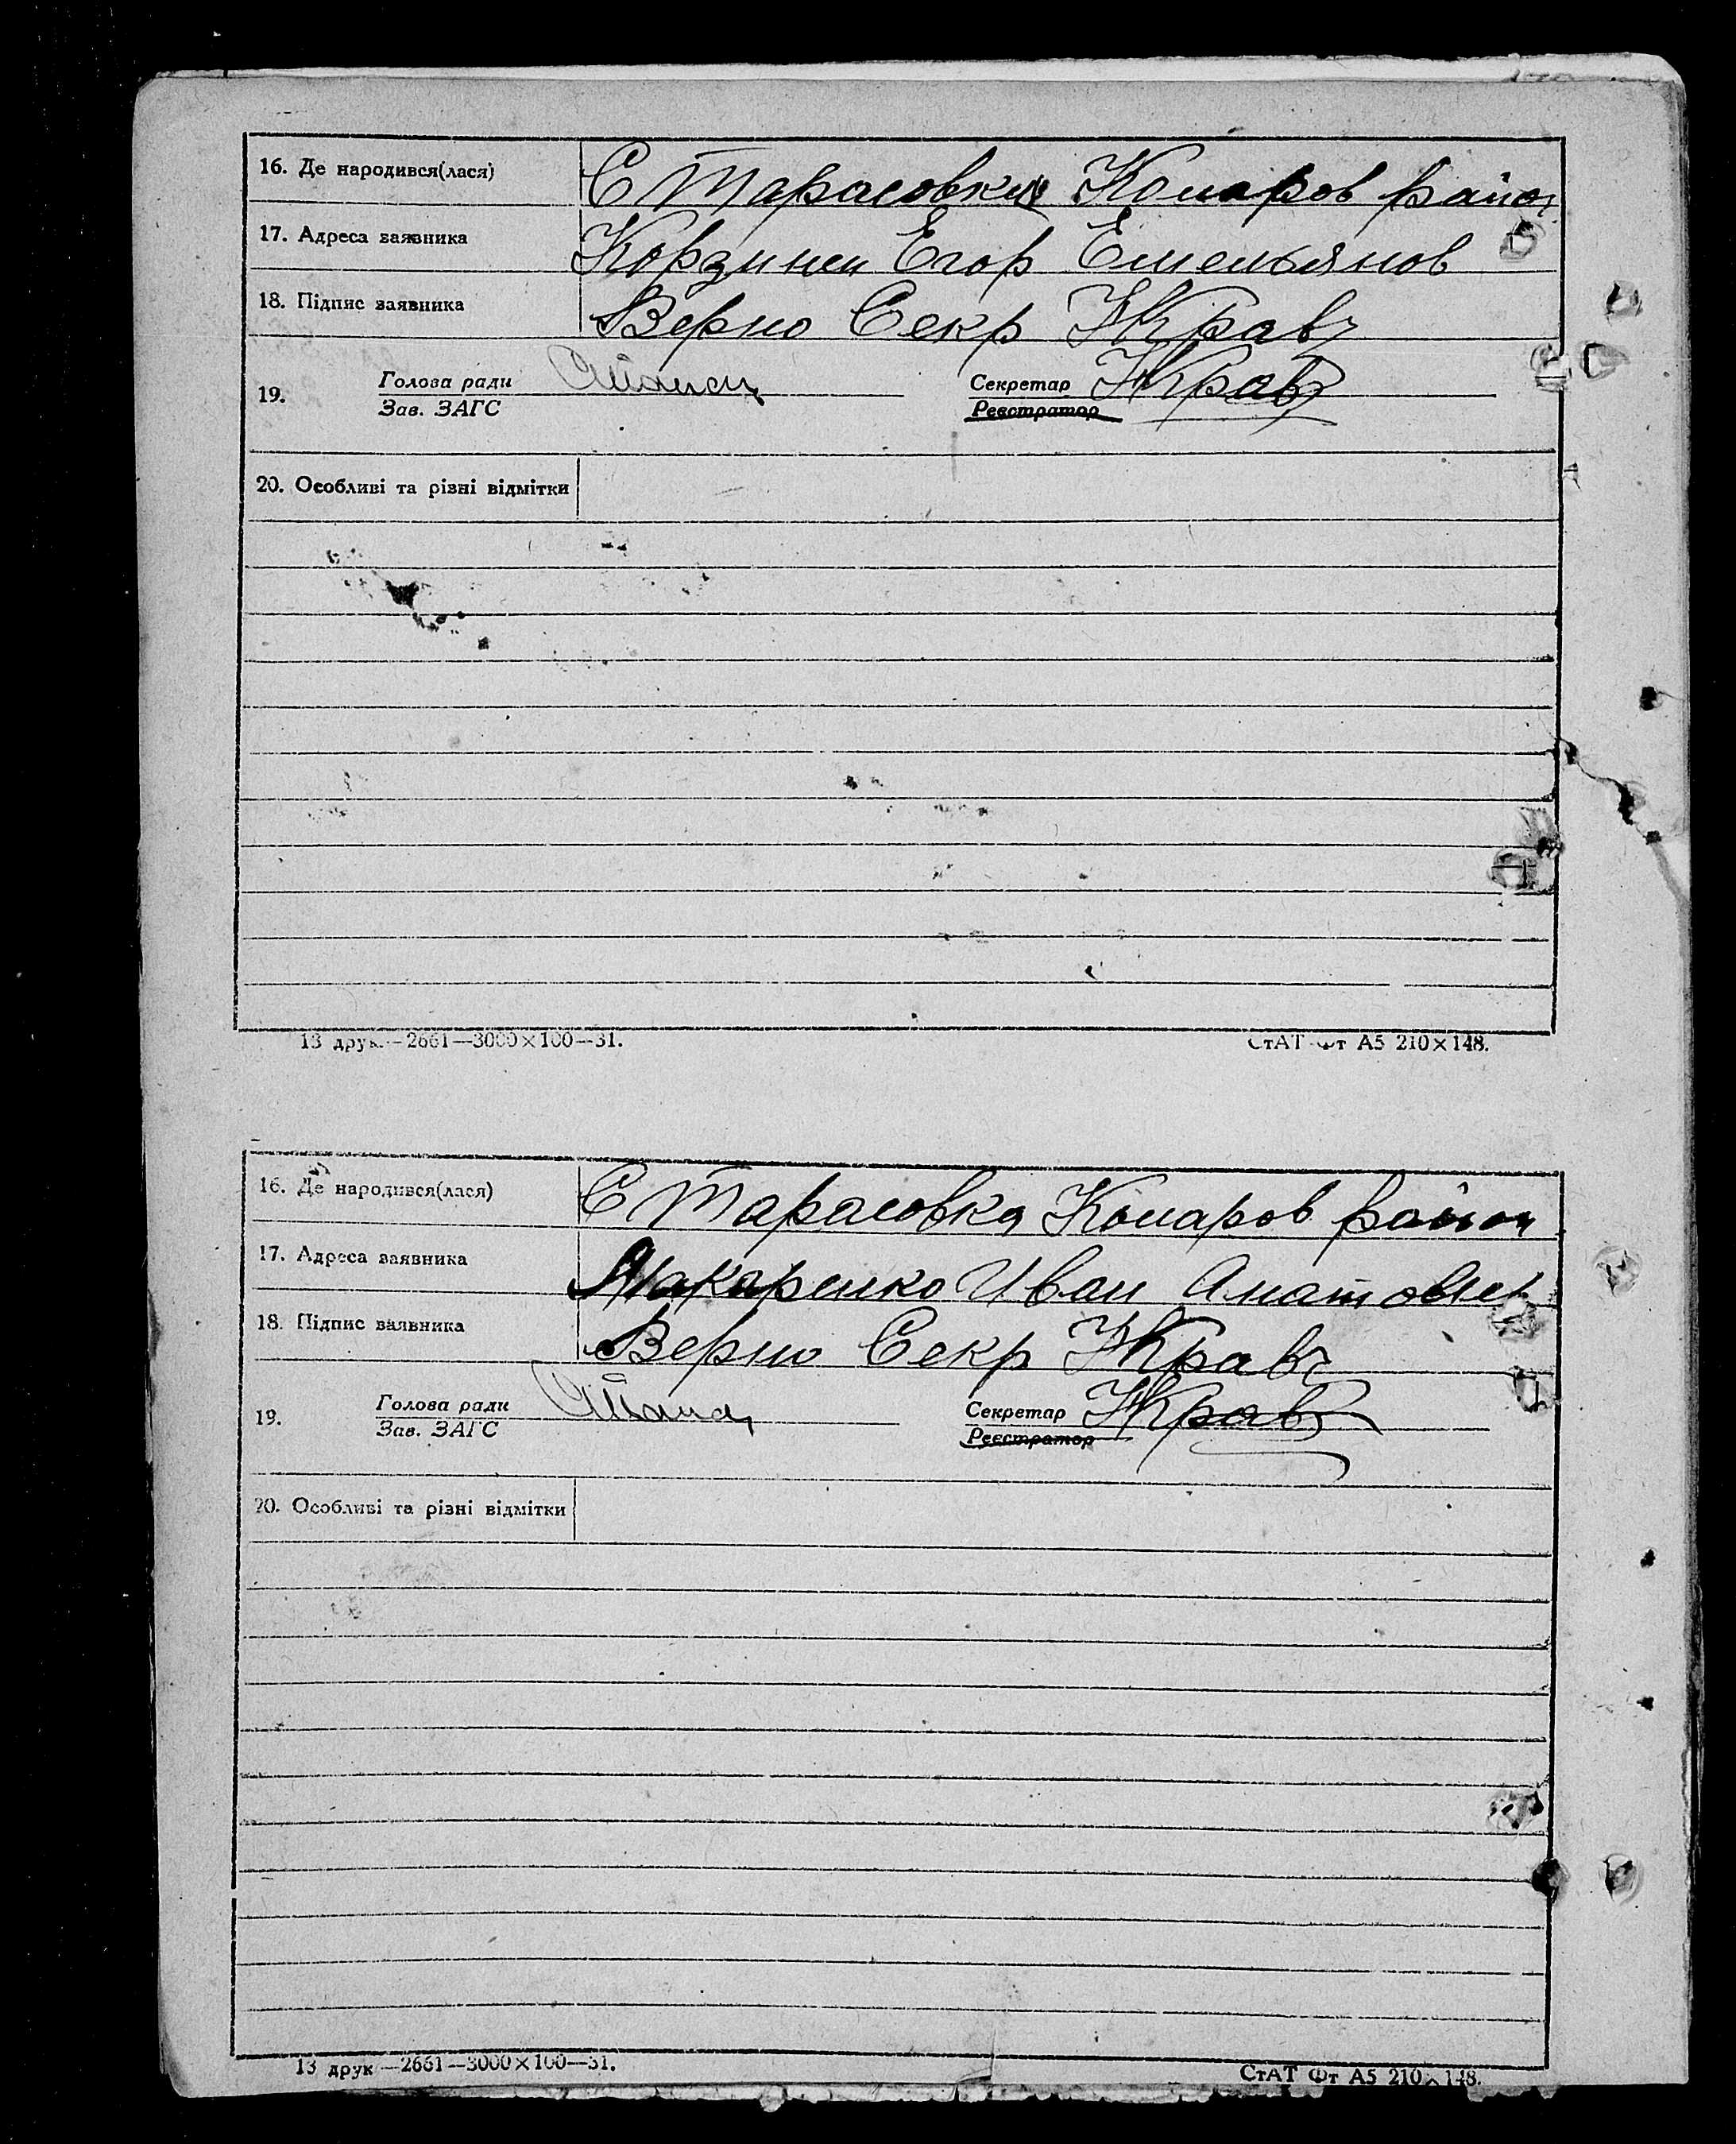 16. Де народився(лася) С Тарасовка Комаров район
17. Адреса заявника Егор Емельянов
18. Підпис заявника Верно Секр Кравч
19. Голова ради Секретар Крав
Зав. ЗАГС Реєстратор
20. Особливі та різні відмітки
13 друк.—2661—3000×100—31. СтАТ Фт А5 210×148.
16. Де народився(лася) С Тарасовка Комаров район
17. Адреса заявника Макаренко Иван
18. Підпис заявника Верно Секр Кравч
19. Голова ради Секретар Крав
Зав. ЗАГС Реєстратор
20. Особливі та різні відмітки
13 друк—2661—3000×100—31. СтАТ Фт А5 210×148.